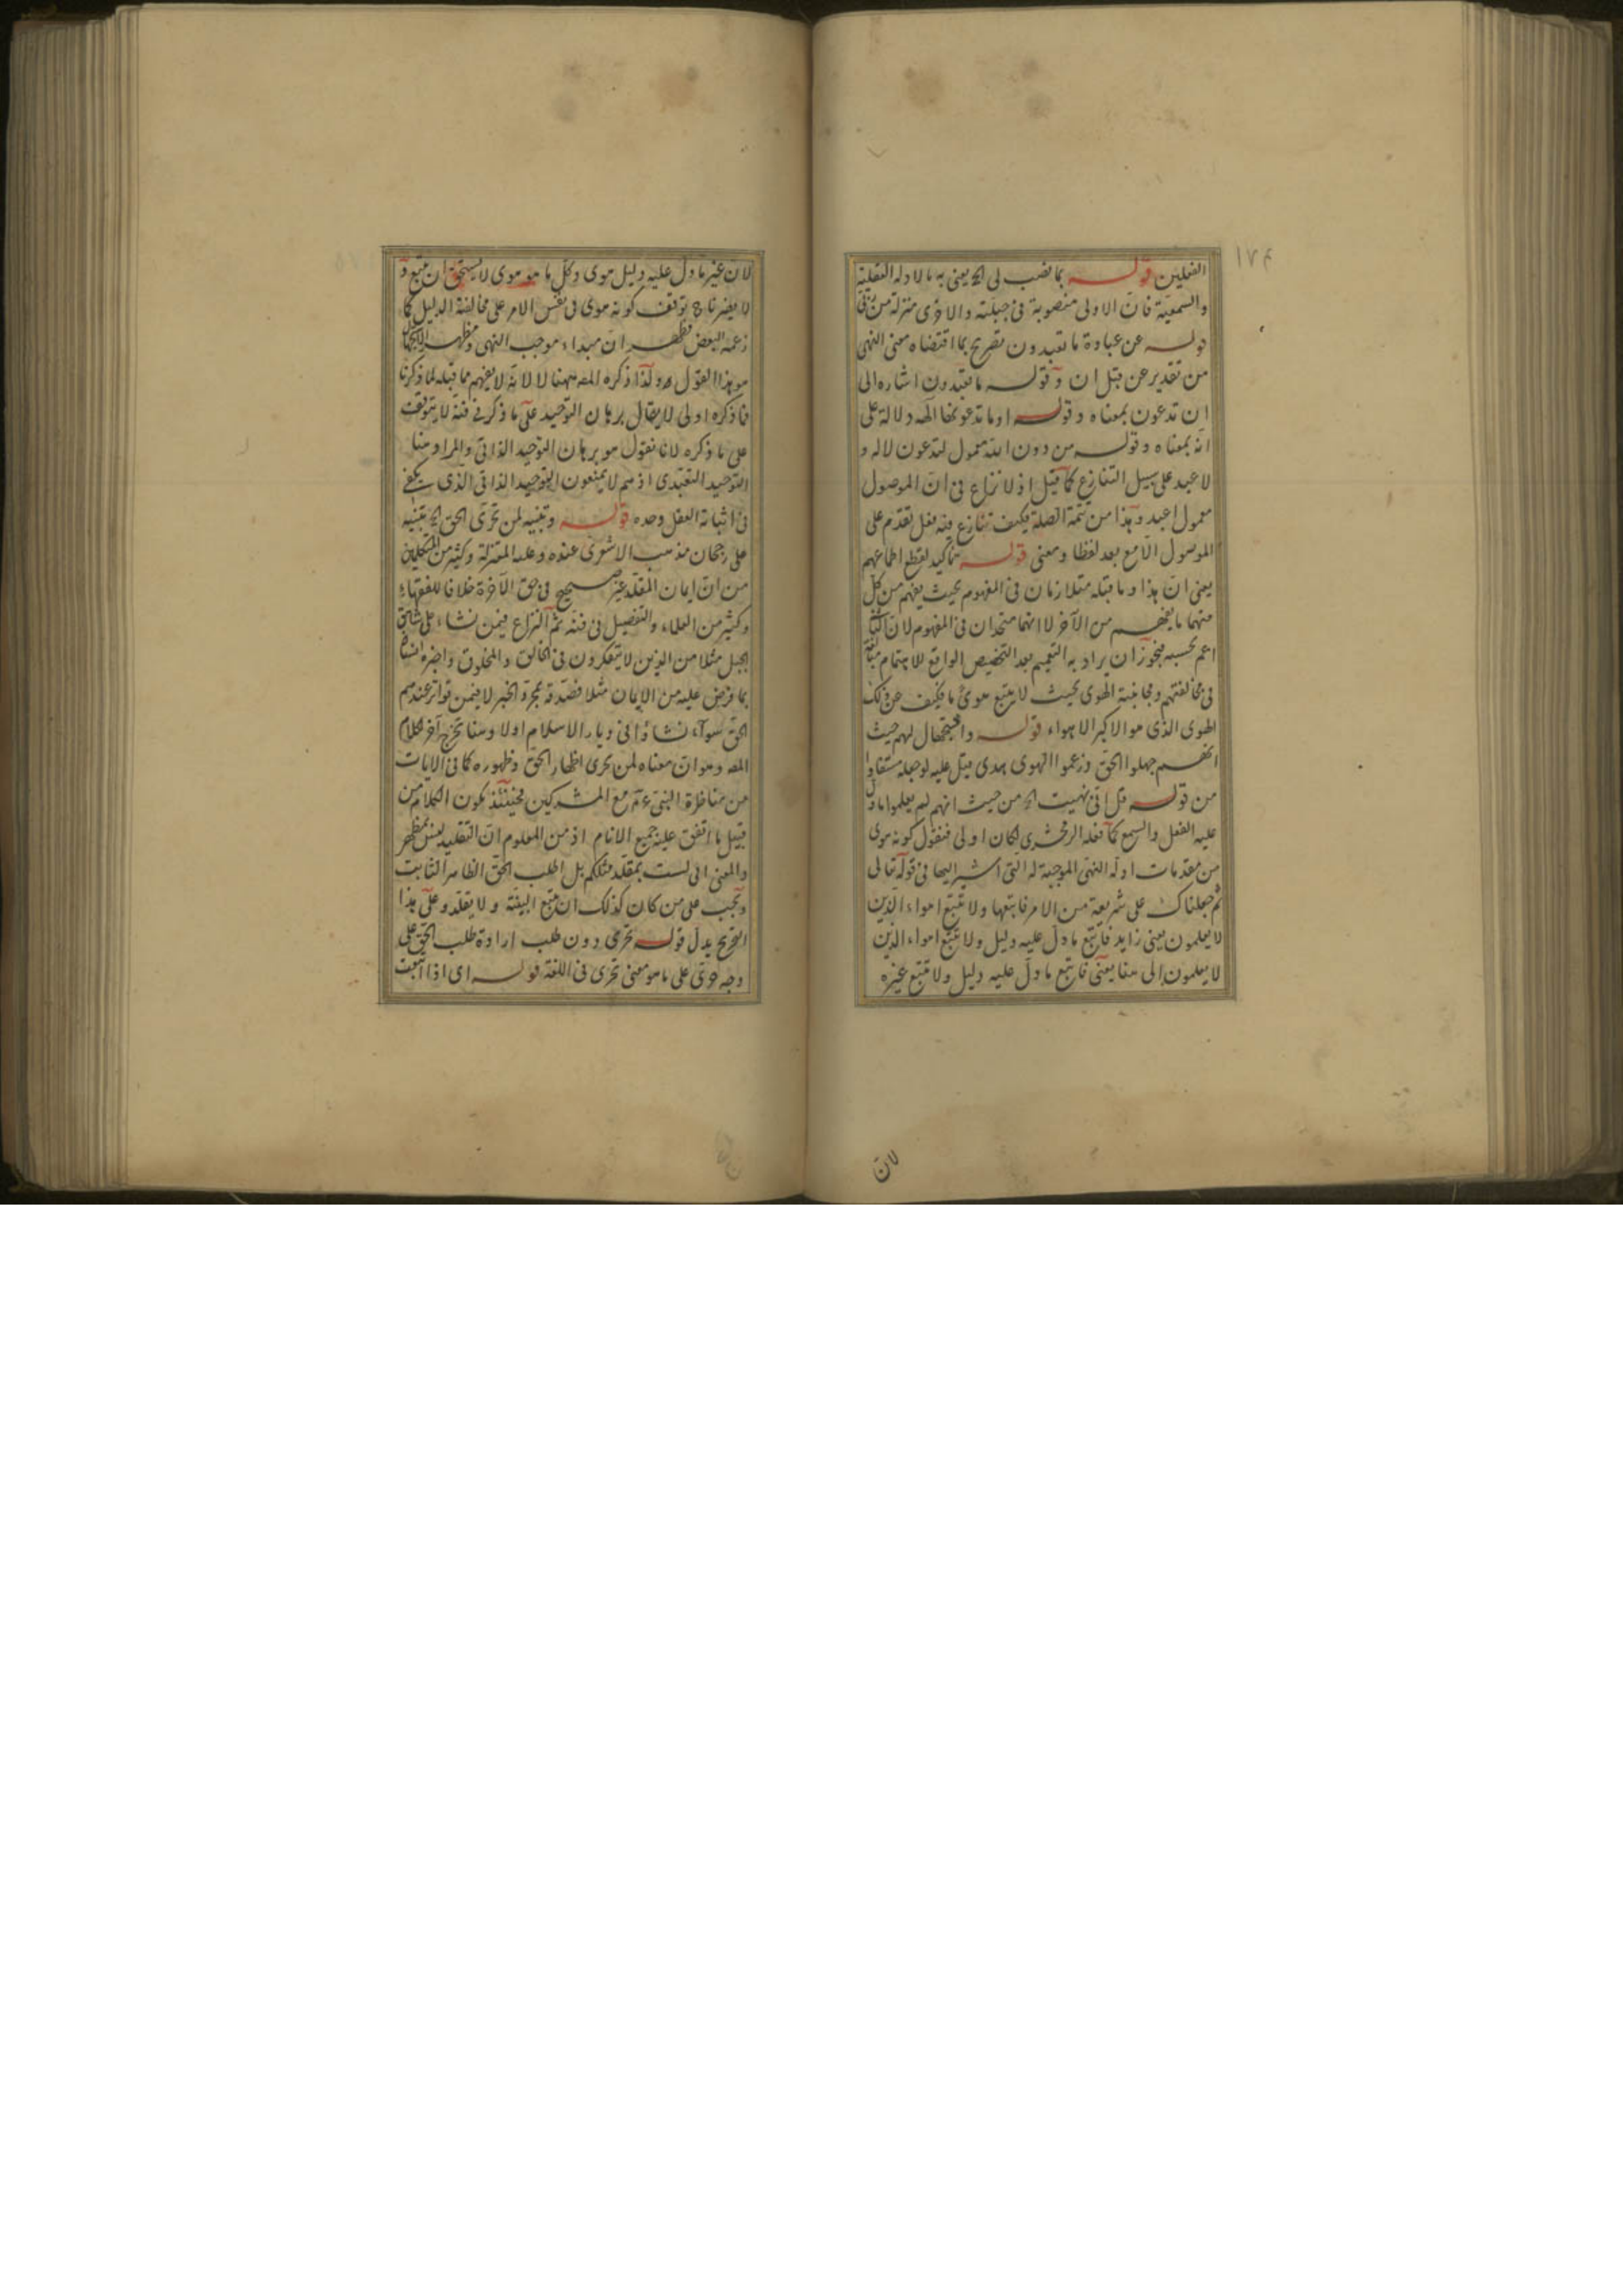 ١٧٤
الفعلين قوله بما نصب لى الخ يعنى به بالادلة العقلية
والسمعية فان الاولى منصوبة فى جبلته والاخرى منزلة من
قوله عن عبادة ما تعبدون تصريح بما اقتضاه معنى النهى
من تقدير عن قبل ان وقوله ما تعبدون اشاره الى
ان تدعون بمعناه وقوله او ما تدعونها الهه دلالة على
انه بمعناه وقوله من دون الله معمول لتدعون لا له و
لا عبد على سبيل التنازع كما قيل اذ لا نزاع فى ان الموصول
معمول اعبد وهذا من تتمة الصلة فكيف تنازع فيه فعل تقدم على
الموصول الامع بعد لفظا ومعنى قوله تاكيد لقطع اطماعهم
يعنى ان هذا وما قبله متلازمان فى المفهوم بحيث يفهم من كل
منهما ما يفهم من الآخر لا انهما متحدان فى المفهوم لان
اعم بحسبه فيجوز ان يراد به التعميم بعد التخصيص الواقع للاهتمام
فى مخالفتهم ومجانبة الهوى بحيث لا يتبع هوى ما فكيف عن ذلك
الهوى الذى هو الاكبر الاهواء قوله واستجهال لهم حيث
انهم جهلوا الحق وزعموا الهوى هدى قيل عليه لو جعله مستفادا
من قوله قل انى نهيت الخ من حيث انهم لم يعلموا ما دل
عليه العقل والسمع كما فعله الزمخشرى لكان اولى فنقول كونه هوى
من مقدمات ادلة النهى الموجبة له التى اشير اليها فى قوله تعالى
ثم جعلناك على شريعة من الامر فاتبعها ولا تتبع اهواء الذين
لا يعلمون يعنى زايد فاتبع ما دل عليه دليل ولا تتبع اهواء الذين
لا يعلمون الى هنا يعنى فاتبع ما دل عليه دليل ولا تتبع غيره
لان
لان غير ما دل عليه دليل هوى وكل ما هو هوى لا يستحق ان يتبع و
لا يضرنا ح توقف كونه هوى فى نفس الامر على مخالفة الدليل كما
زعمه البعض فظهر ان مبداء موجب النهى ومظهر
هو هذا القول ولذا ذكره المص ههنا لا لانه لا يفهم مما قبله لما ذكرنا
فما ذكره اولى لا يقال برهان التوحيد على ما ذكر فى فنه لا يتوقف
على ما ذكره لانا نقول هو برهان التوحيد الذاتى والمراد هنا
التوحيد التعبدى اذ هم لا يمنعون التوحيد الذاتى الذى يكفى
فى اثباته العقل وحده قوله وتنبيه لمن تحرى الحق الخ تنبيه
على رجحان مذهب الاشعرى عنده وعليه المعتزلة وكثير من المتكلمين
من ان ايمان المقلد غير صحيح فى حق الآخرة خلافا للفقهاء
وكثير من العلماء والتفصيل فى فنه ثم النزاع فيمن نشاء على شاهق
الجبل مثلا من الذين لا يتفكرون فى الخالق والمخلوق واخبره انسان
بما فرض عليه من الايمان مثلا فصدقه بمجرد الخبر لا فيمن تواتر عندهم
الحق سواء نشاؤا فى ديار الاسلام اولا وهنا تخريج آخر لكلام
المص وهو ان معناه لمن تحرى اظهار الحق وظهوره كما فى الايات
من مناظرة النبى عم مع المشركين فحينئذ يكون الكلام من
قبيل ما اتفق عليه جميع الانام اذ من المعلوم ان التقليد ليس بمظهر
والمعنى انى لست بمقلد مثلكم بل اطلب الحق الظاهر الثابت
ويجب على من كان كذلك ان يتبع البينة ولا يقلد وعلى هذا
التخريج يدل قوله تحرى دون طلب ارادة طلب الحق على
وجه حرى على ما هو معنى تحرى فى اللغة قوله اى اذا اتبعت